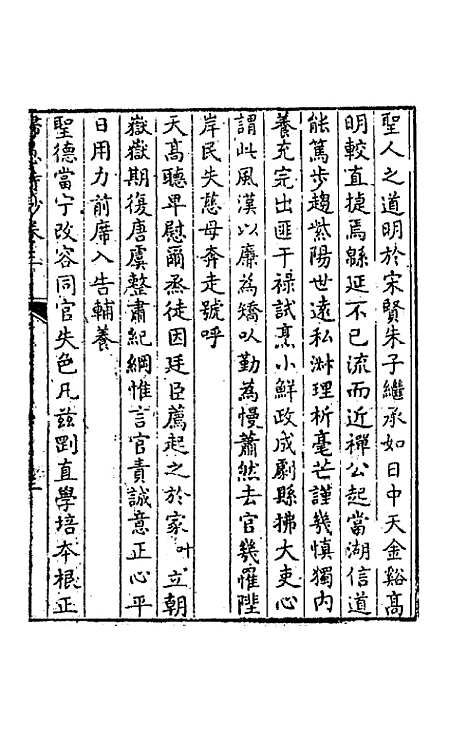 聖人之道明於宋賢朱子繼承如日中天金谿高
明較直捷焉緜延不已流而近禪公起當湖信道
能篤步趨紫陽世遠私淑理析毫芒謹幾慎獨內
養充完出匪干祿試烹小鮮政成劇縣拂大吏心
謂此風漢以廉為矯以勤為慢蕭然去官幾罹陛
岸民失慈母奔走號呼
天高聽卑慰爾烝徒因廷臣薦起之於家叶立朝
嶽嶽期復唐虞整肅紀綱惟言官責誠意正心平
日用力前席入告輔養
聖德當宁改容同官失色凡茲剛直學培本根正